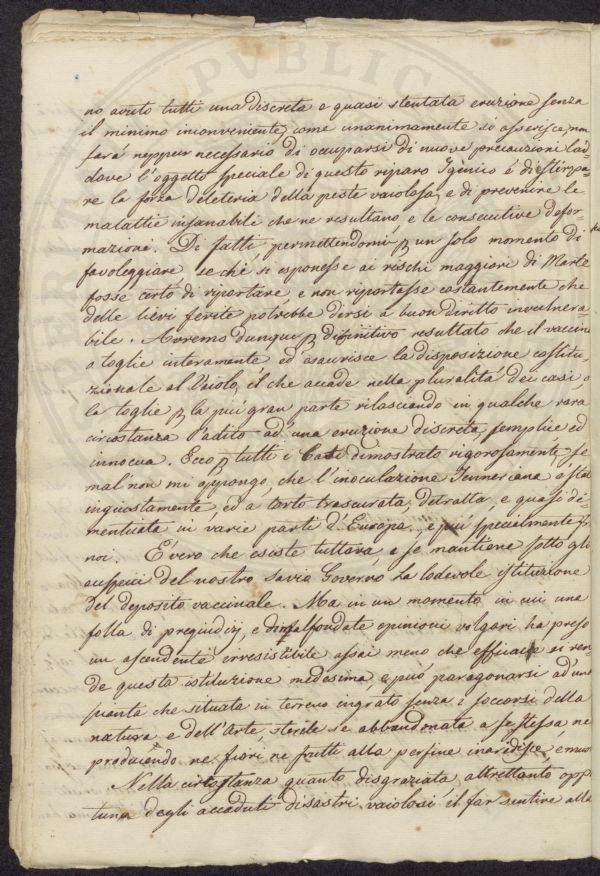 no avuto tutti una discreta e quasi stentata eruzione senza
il minimo inconveniente, come unanimamente si asserisce, non
sarà neppur necessario di occuparsi di nuove precauzioni lad=
dove l'oggetto speciale di questo riparo Igenico è di estirpa=
re la forza deleteria della peste vaiolosa, e di prevenire le
malattie insanabili che ne resultano, e le consecutive defor=
mazioni. Di fatti, permettendomi p un solo momento di
favoleggiare se chi si esponesse ai rischi maggiori di Marte
fosse certo di riportare, e non riportasse costantemente che
delle lievi ferite potrebbe dirsi a buon diritto invulnera=
bile. Avremo dunque p difinitivo resultato che il vaccino
o toglie interamente ed esaurisce la disposizione costitu=
zionale al Vaiolo, il che accade nella pluralità dei casi o
la toglie p la più gran parte rilasciando in qualche rara
circostanza l'adito ad una eruzione discreta, semplice ed
innocua. Ecco p tutti i Casi dimostrato rigorosamente, se
mal non mi appongo, che l'inoculazione Jenneriana è stat
ingiustamente, ed a torto trascurata, detratta, e quasi di=
menticata in varie parti d'Europa, e più specialmente fr
noi. È vero che esiste tuttavia, e se mantiene sotto gli
auspicii del nostro savio Governo la lodevole istituzione
del deposito vaccinale. Ma in un momento in cui una
folla di pregiudizj, e di malfondate opinioni volgari ha preso
un ascendente irresistibile assai meno che efficace si ren=
de questa istituzione medesima, e può paragonarsi ad una
pianta che situata in terreno ingrato senza i soccorsi della
natura e dell'Arte, sterile se abbandonata a se stessa ne
producendo ne fiori ne frutti alla perfine inaridisce, e muo
Nella circostanza quanto disgraziata, altrettanto opp
tuna degli accaduti disastri vaiolosi il far sentire alla